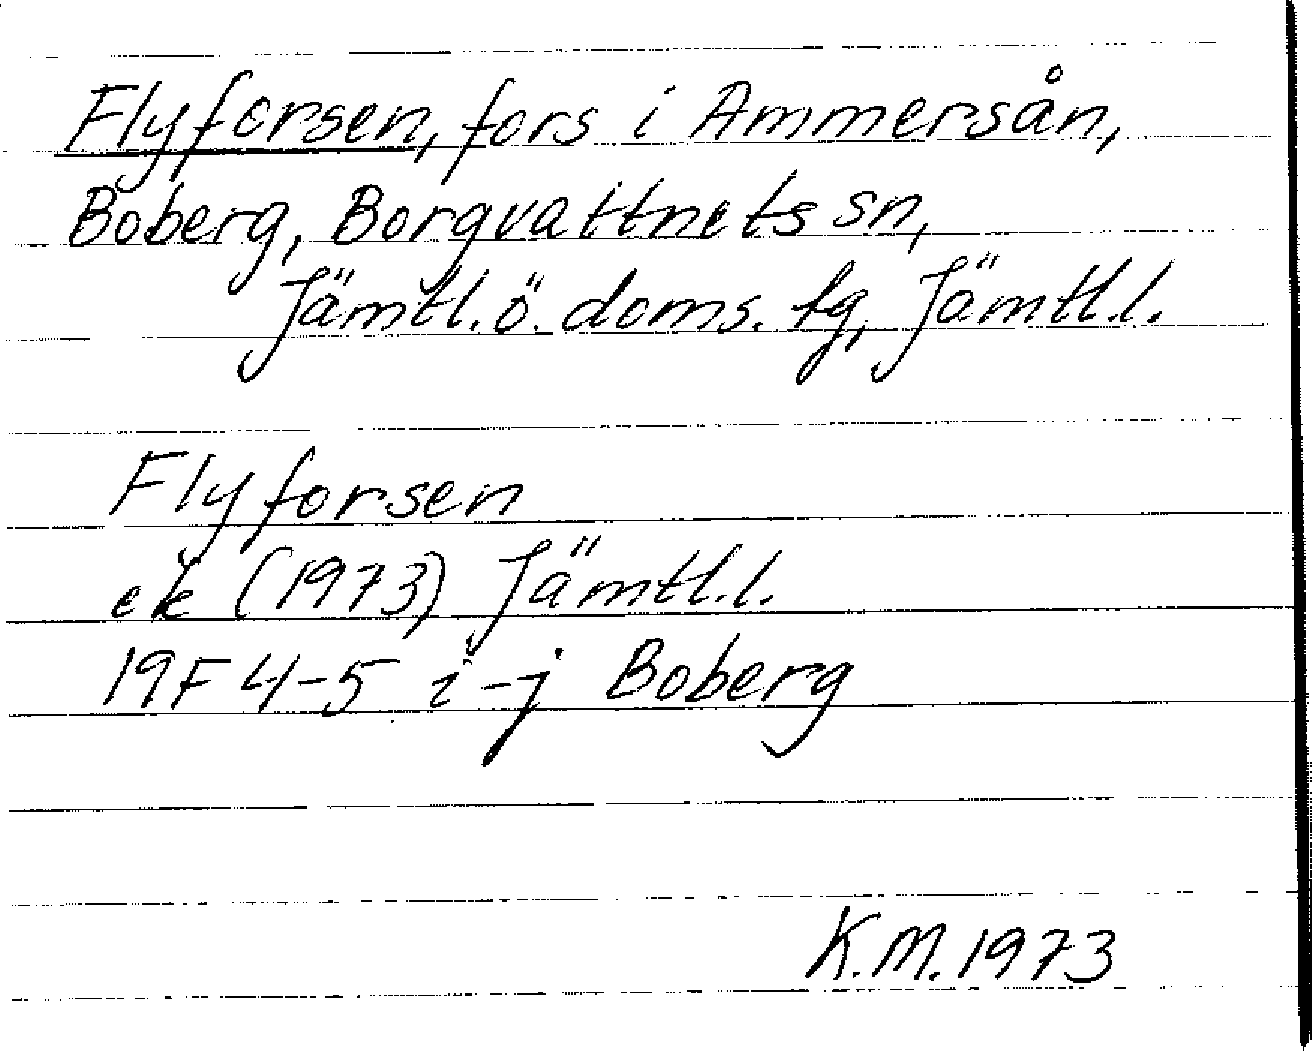 Flyforsen, fors i Ammersån,
Boberg, Borgvattnets sn,
Jämtl. ö. doms. tg, Jämtl.l.
Flyforsen
ek (1973) Jämtl.l.
19F 4-5 i-j Boberg
K.M. 1973